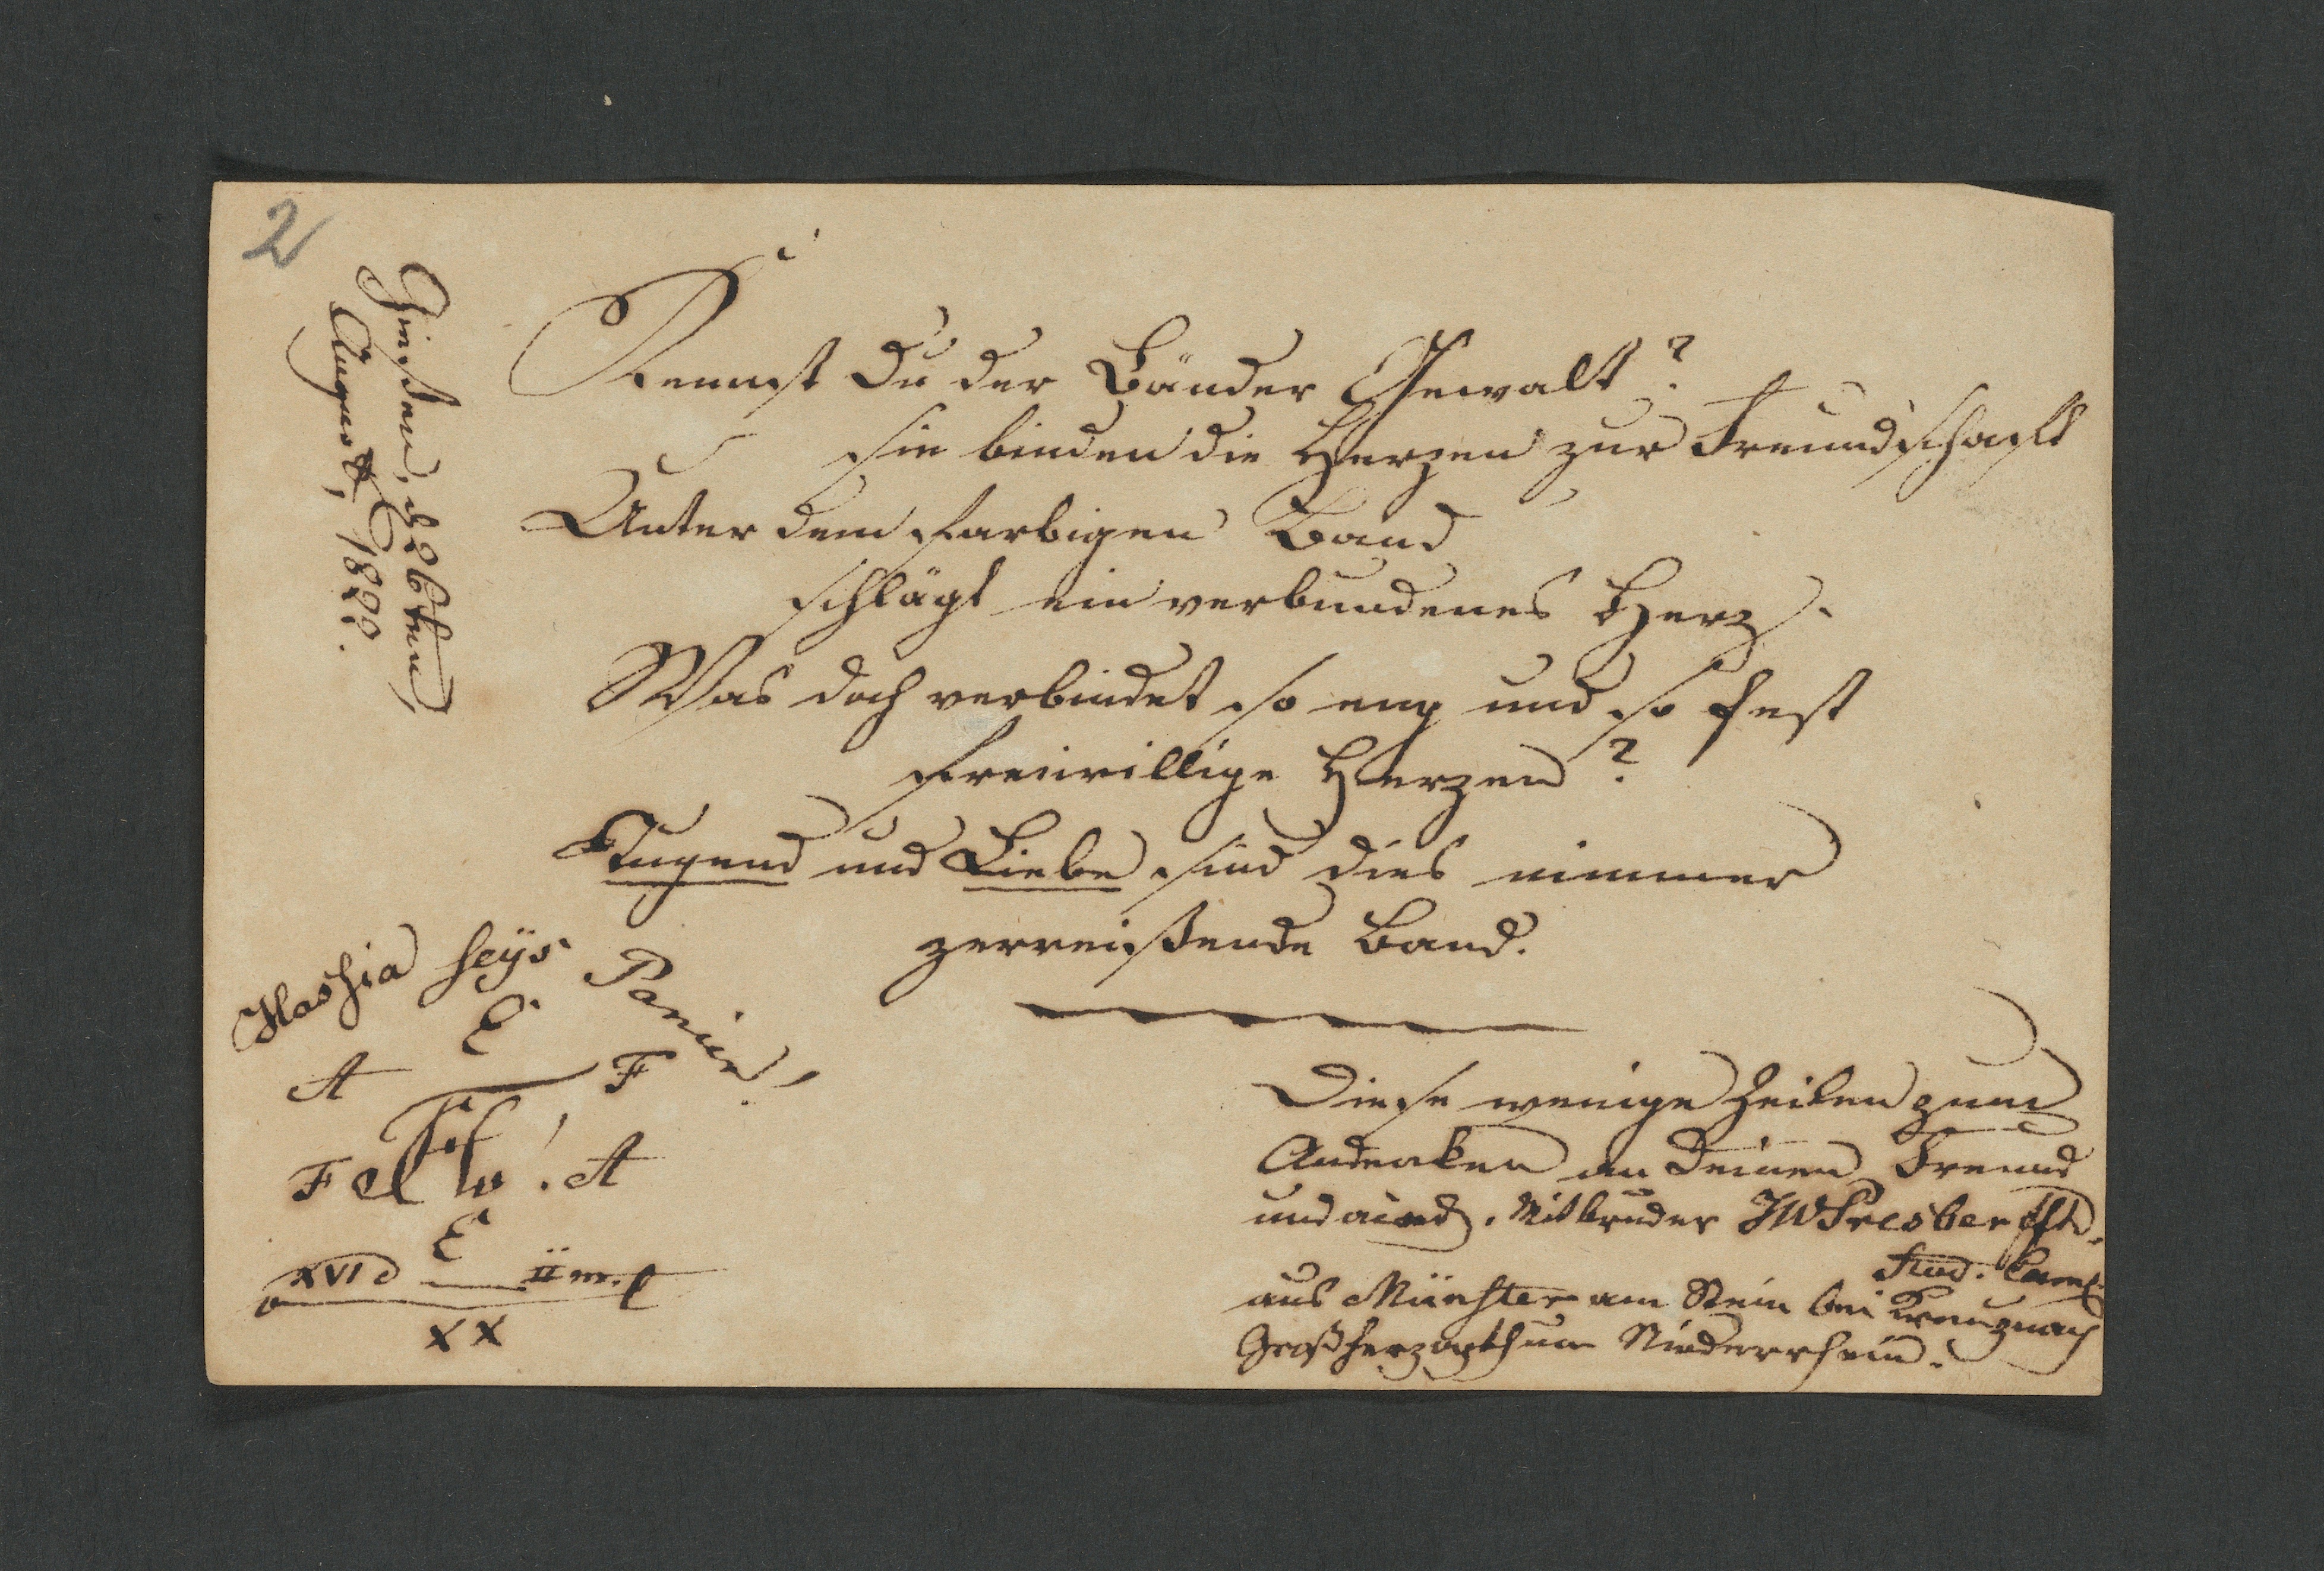 2
Gießen, d 26ten
August, 1822.
Kennst Du der Bänder Gewalt?
sie binden die Herzen zur Freundschaft
Unter dem farbigen Band
schlägt ein verbundenes Herz.
Was doch verbindet so eng und so fest
freiwillige Herzen?
Tugend und Liebe sind dies nimmer
zerreißende Band.
Hassia seys Panier!
E
A F
F A
E
XVI d II m.
XX
Diese wenige Zeilen zum
Andenken an Deinen Freund
und Mitbruder JW Presber
Stud. Cam.
aus Münster am Stein bei Kreuznach
Großherzogthum Niederrhein.